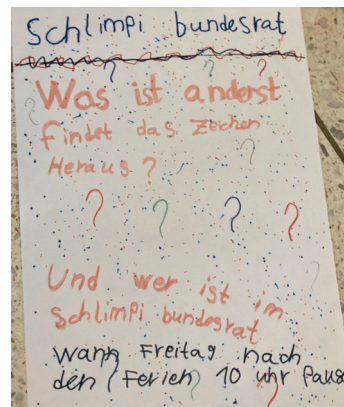 Schlimpi bundesrat
? ? ?
Was ist anderst
?
findet das Zeichen
?
Heraus?
? ? ? ?
Und wer ist im
?
Schlimpi bundesrat
wann Freitag nach
den ? Ferien ? 10 uhr Pause
?